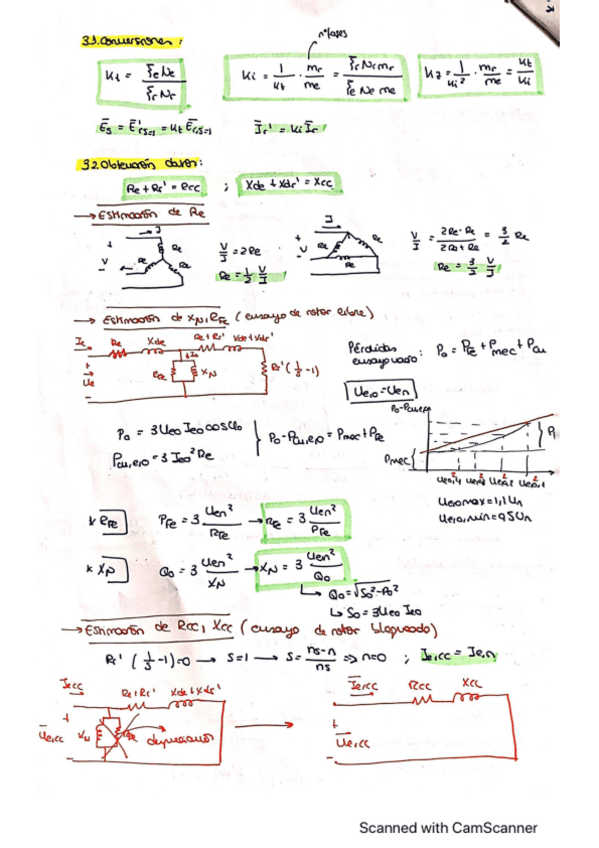 nºfases
3.1. Conversiones:
Kt = ξe Ne / ξr Nr
Ki = 1/Kt · mr/me = ξr Nr mr / ξe Ne me
Kz = 1/Ki² · mr/me = Kt/Ki
Es = E'rs=1 = Kt Er,s=1
Ir' = Ki Ir
3.2 Obtención datos:
Re + Rr' = Rcc ; Xde + Xdr' = Xcc
→ Estimación de Re
I
+
V
-
Re
Re
Re
V/I = 2Re
Re = 1/2 V/I
I
+
V
-
Re
Re
Re
V/I = 2Re·Re / 2Re+Re = 2/3 Re
Re = 3/2 V/I
→ Estimación de XN, RFe (ensayo de rotor libre)
Ie
Re
Xde
Re+Rr'
Xde+Xdr'
+
Ue
-
RFe
XN
Rr' (1/s -1)
Pérdidas ensayo vacío: P0 = PFe + Pmec + Pcu
Ue,o = Uen
P0-Pcu,e,o
Pmec
P0 = 3Ueo Ieo cosφo
Pcu,e,o = 3 Ieo² Re
P0 - Pcu,e,o = Pmec + PFe
Ue,o,max = 1,1 Un
* RFe
PFe = 3 Uen²/RFe → RFe = 3 Uen²/PFe
* XN
Q0 = 3 Uen²/XN → XN = 3 Uen²/Q0
↳ Q0 = √S0²-P0²
↳ S0 = 3Ueo Ieo
→ Estimación de Rcc, Xcc (ensayo de rotor bloqueado)
Rr' (1/s -1) = 0 → S=1 → S = ns-n/ns => n=0 ; Ie,cc = Ie,n
Iecc
Re+Rr'
Xde+Xdr'
+
Ue,cc
-
XN
RFe
Ie,cc
Rcc
Xcc
+
Ue,cc
-
Scanned with CamScanner